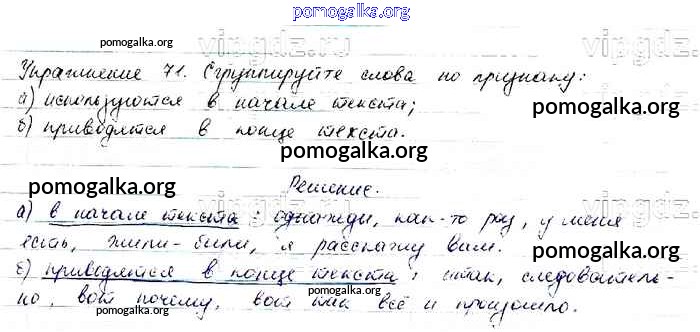 pomogalka.org
pomogalka.org
vipgdz.ru
vipgdz.ru
Упражнение 71. Сгруппируйте слова по признаку:
а) используются в начале текста;
pomogalka.org
б) приводятся в конце текста.
pomogalka.org
Решение.
pomogalka.org
vipgdz.ru
а) в начале текста: однажды, как-то раз, у меня
есть, жили-были, я расскажу вам.
pomogalka.org
б) приводятся в конце текста: итак, следователь-
но, вот почему, вот как всё и произошло.
pomogalka.org
pomogalka.org